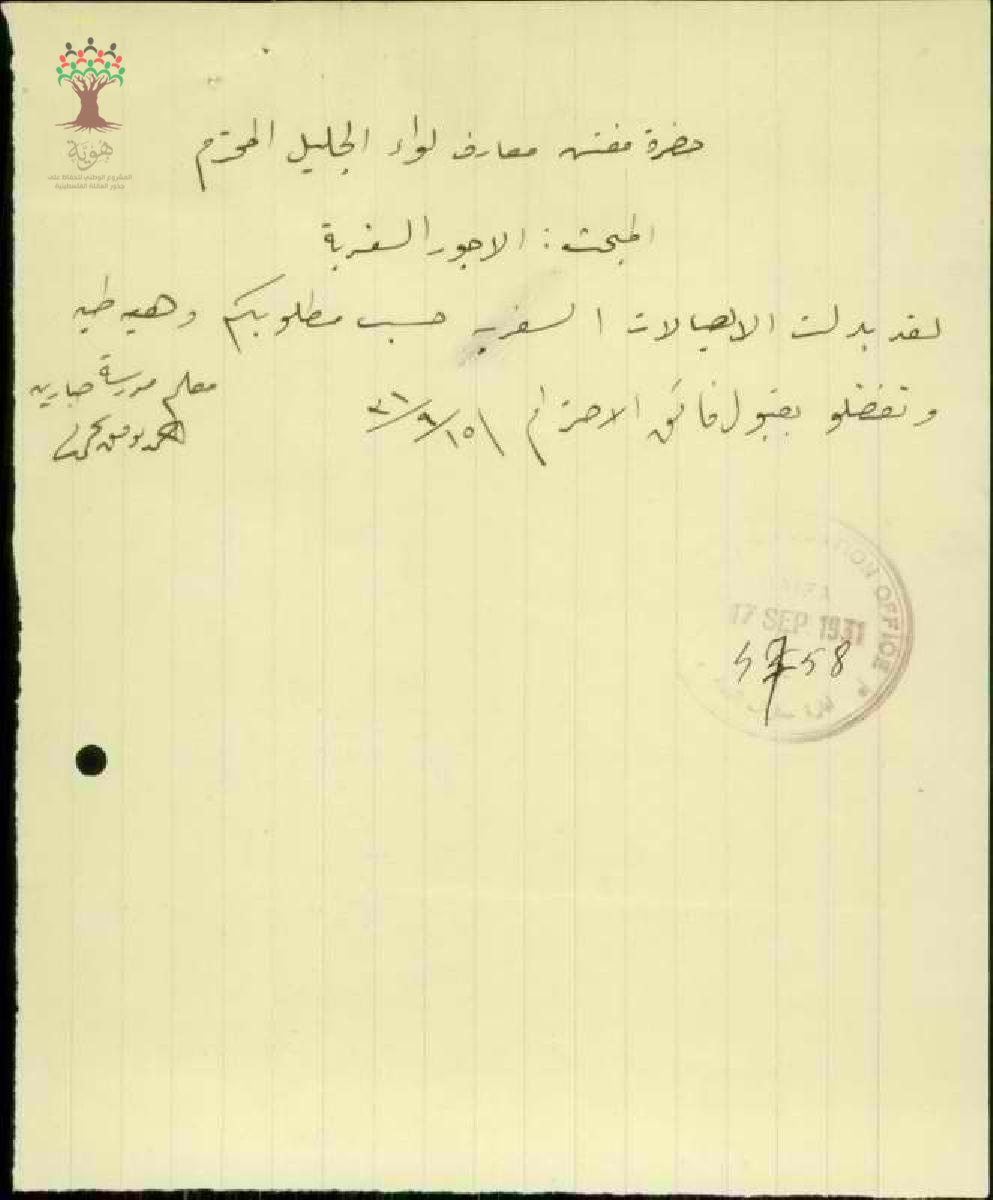 هوية
المشروع الوطني للحفاظ على
جذور العائلة الفلسطينية
حضرة مفتش معارف لواء الجليل المحترم
المبحث: الاجور السفرية
لقد بدلت الايصالات السفريه حسب مطلوبكم وهيه طيه
وتفضلو بقبول فائق الاحترام ١٥/٩/٣١
معلم مدرسة صبارين
TION OFFICE
HAIFA
17 SEP 1931